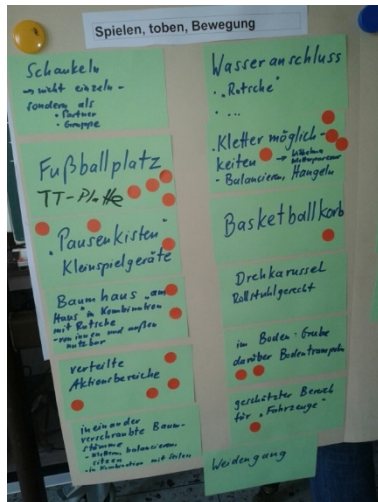 Spielen, toben, Bewegung
Schaukeln
nicht einzeln -
sondern als
• Partner
• Gruppe
Fußballplatz
TT-Platte
"Pausenkisten"
Kleinspielgeräte
Baumhaus "am
Haus in Kombination
mit Rutsche
- von innen und außen
nutzbar
verteilte
Aktionsbereiche
ineinander
verschraubte Baum-
stämme
- klettern, balancieren,
sitzen
- in Kombination mit Seilen
Wasseranschluss
• "Rutsche"
• ...
• Klettermöglich-
keiten →
- Balancieren, Hangeln
Basketballkorb
Drehkarussel
Rollstuhlgerecht
im Boden - Grube
darüber Bodentrampolin
geschützter Bereich
für "Fahrzeuge"
Weidengang